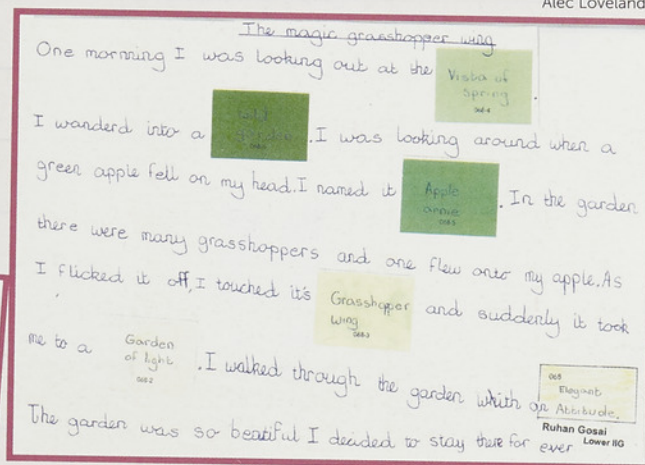 Alec Loveland
The magic grasshopper wing
One mornning I was looking out at the Vista of Spring.
I wanderd into a wild garden. I was looking around when a
green apple fell on my head. I named it Apple annie. In the garden
there were many grasshoppers and one flew onto my apple. As
I flicked it off, I touched it's Grasshopper wing and suddenly it took
me to a Garden of light. I walked through the garden which an Elegant Attitude.
The garden was so beatiful I decided to stay there for ever
Ruhan Gosai
Lower IIG